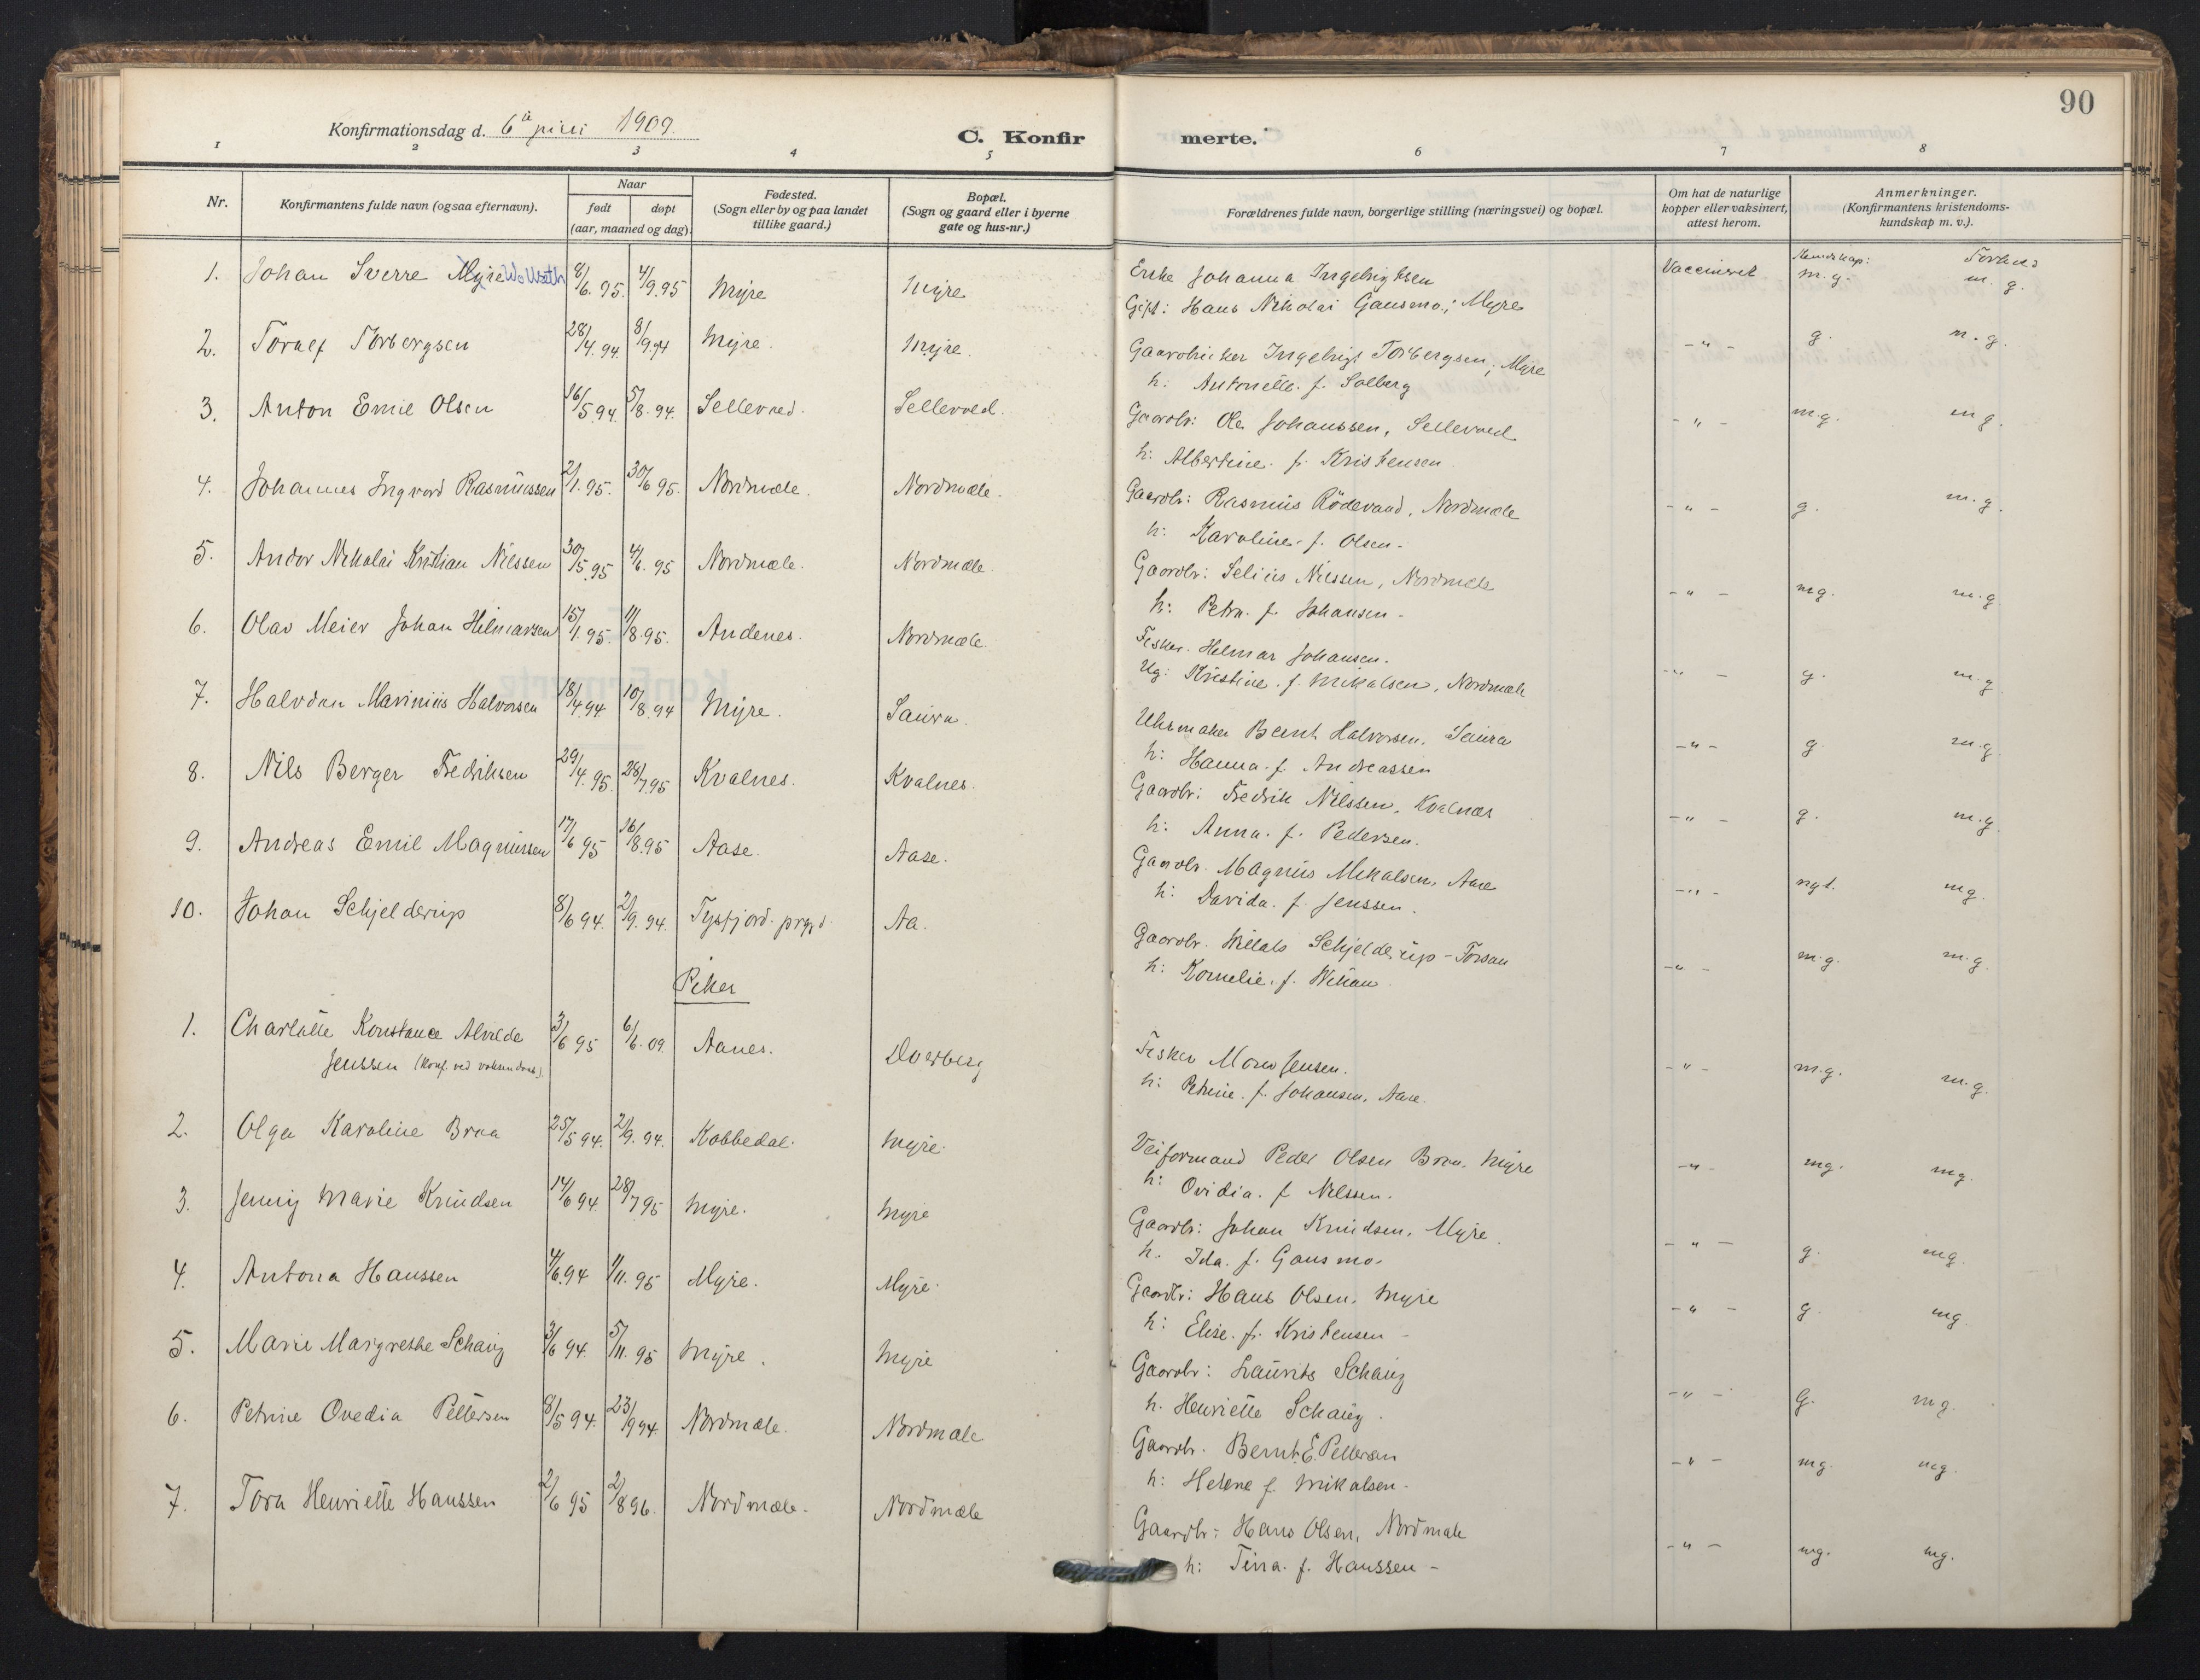 90
Konfirmationsdag d. 6te juni 1909.
C. Konfirmerte.
1 2 3 4 5 6 7 8
Nr. Konfirmantens fulde navn (ogsaa efternavn). Naar født døpt (aar, maaned og dag). Fødested. (Sogn eller by og paa landet tillike gaard.) Bopæl. (Sogn og gaard eller i byerne gate og hus-nr.) Forældrenes fulde navn, borgerlige stilling (næringsvei) og bopæl. Om hat de naturlige kopper eller vaksinert, attest herom. Anmerkninger. (Konfirmantens kristendoms-kundskap m. v.).
Kundskap: Forhold
1. Johan Sverre Myre Wollseth 8/6. 95. 4/9.95 Myre Myre Enke Johanna Ingebrigtsen Vaccineret m.g. m.g.
Gift: Hans Nikolai Gausmo; Myre
2. Toralf Torbergsen 28/4.94. 8/9.94 Myre. Myre. Gaardbruker Ingebrigt Torbergsen; Myre - " - g. m.g.
h: Antonette. f. Solberg
3. Anton Emil Olsen 16/5.94. 5/8.94. Sellevoed. Sellevoed. Gaardbr: Ole Johanssen, Sellevoed - " - m.g. m.g.
h: Albertine. f. Kristensen
4. Johannes Ingvard Rasmussen 2/1.95. 30/6 95. Nordmæle. Nordmæle. Gaardbr: Rasmus Rødevand, Nordmæle - " - g. m.g.
h: Karoline. f. Olsen.
5. Andor Nikolai Kristian Nilssen 30/5.95 4/6. 95 Nordmæle. Nordmæle. Gaardbr: Selius Nilssen, Nordmæle - " - mg. m.g.
h: Petra. f. Johansen -
6. Olav Meier Johan Hilmarsen 15/1.95. 11/8.95. Andenes. Nordmæle. Fisker. Helmar Johansen. - " - g. m.g.
Ug: Kristine. f. Mikalsen, Nordmæle
7. Halvdan Marinius Halvorsen 18/4.94. 10/8.94 Myre. Saura. Uhrmaker Bernt Halvorsen, Saura - " - g. m.g.
h: Hanna. f. Andreassen
8. Nils Berger Fredriksen 29/4.95. 28/7.95 Kvalnes. Kvalnes. Gaardbr: Fredrik Nilssen, Kvalnes - " - g. m.g.
h: Anna. f. Pedersen.
9. Andreas Emil Magnussen 17/6 95 16/8.95 Aase. Aase. Gaardbr. Magnus Mikalsen, Aase - " - ngt. mg.
h: Davida. f. Jenssen.
10. Johan Schjelderup 8/6 94. 2/9. 94. Tysfjord. prgjd. Aa. Gaardbr. Schjelderup - - " - m.g. m.g.
h: Kornelie. f.
Piker
1. Charlotte Konstance Alvilde 3/6 95 6/6. 09. Aanes. Doerberg Fisker Jensen. - " - m.g. m.g.
Jenssen (Konf. ved voksendaab). h: Petrine. f. Johansen, Aase.
2. Olga Karoline Braa 25/5 94. 2/9. 94. Kobbedal. Myre. Veiformand Peder Olsen Braa, Myre - " - mg. mg.
h: Ovidia. f. Nilssen.
3. Jenny Marie Knudsen 14/6 94. 28/7 95 Myre. Myre Gaardbr: Johan Knudsen, Myre. - " - g. mg.
h. Ida. f. Gausmo.
4. Antona Hanssen 4/6.94 1/11. 95 Myre. Myre. Gaardbr: Hans Olsen, Myre - " - g. mg.
h: Elise. f. Kristensen -
5. Marie Margrethe Schaug 3/6 94. 5/11. 95 Myre. Myre Gaardbr: Laurits Schaug - " - g. mg.
h. Henriette Schaug.
6. Petrine Ovedia Pettersen 8/5 94. 23/9 94. Nordmæle. Nordmæle Gaardbr. Bernt E. Pettersen - " - mg. mg.
h: Helene f. Mikalsen.
7. Tora Henriette Hanssen 2/6 95 2/8 96. Nordmæle. Nordmæle Gaardbr: Hans Olsen, Nordmæle - " - mg. mg.
h: Tina. f. Hanssen -